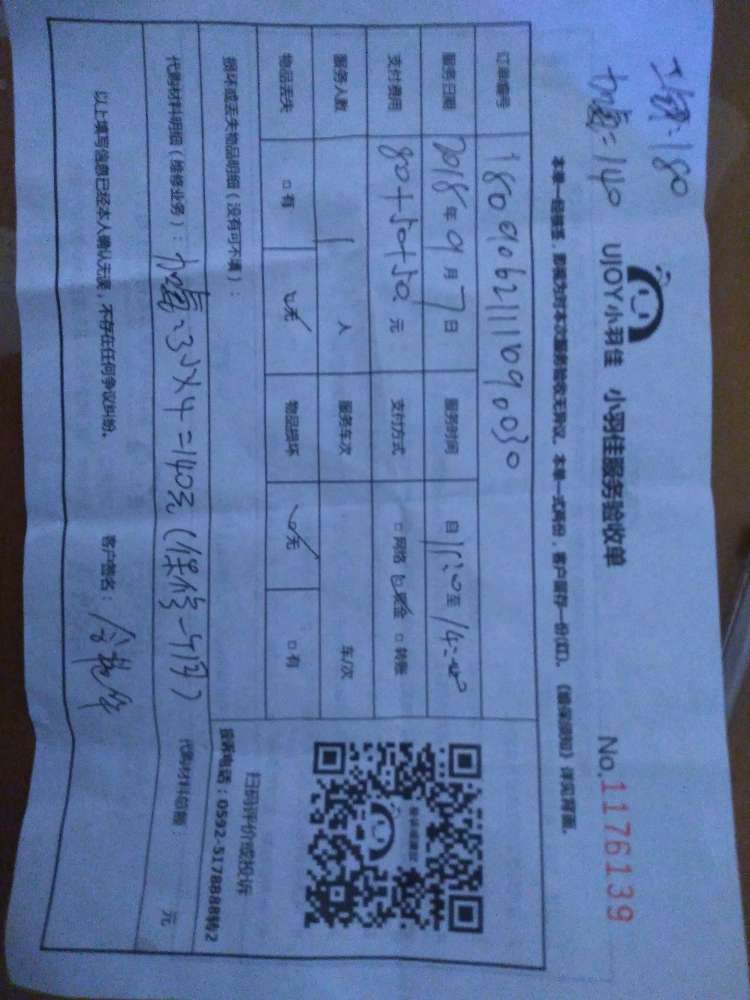 工钱:180
加氟=140
UJOY小羽佳 小羽佳服务验收单
No.1176139
本单一经签署，即视为对本次服务验收无异议，本单一式两份，客户留存一份(红)。《验保须知》详见背面。
订单编号
服务日期 2018年9月7日 服务时间 自 至14:00
支付费用 80+50+50 元 支付方式 □网络 ☑现金 □转账
服务人数 1 人 服务车次 车/次
物品丢失 □有 ☑无 物品损坏 ☑无 □有
扫码评价或投诉
投诉电话：0592-5178888转2
损坏或丢失物品明细（没有可不填）：
代购材料明细（维修业务）：加氟:35X4=140元(保修一个月) 代购材料总额： 元
以上填写信息已经本人确认无误，不存在任何争议纠纷。 客户签名：